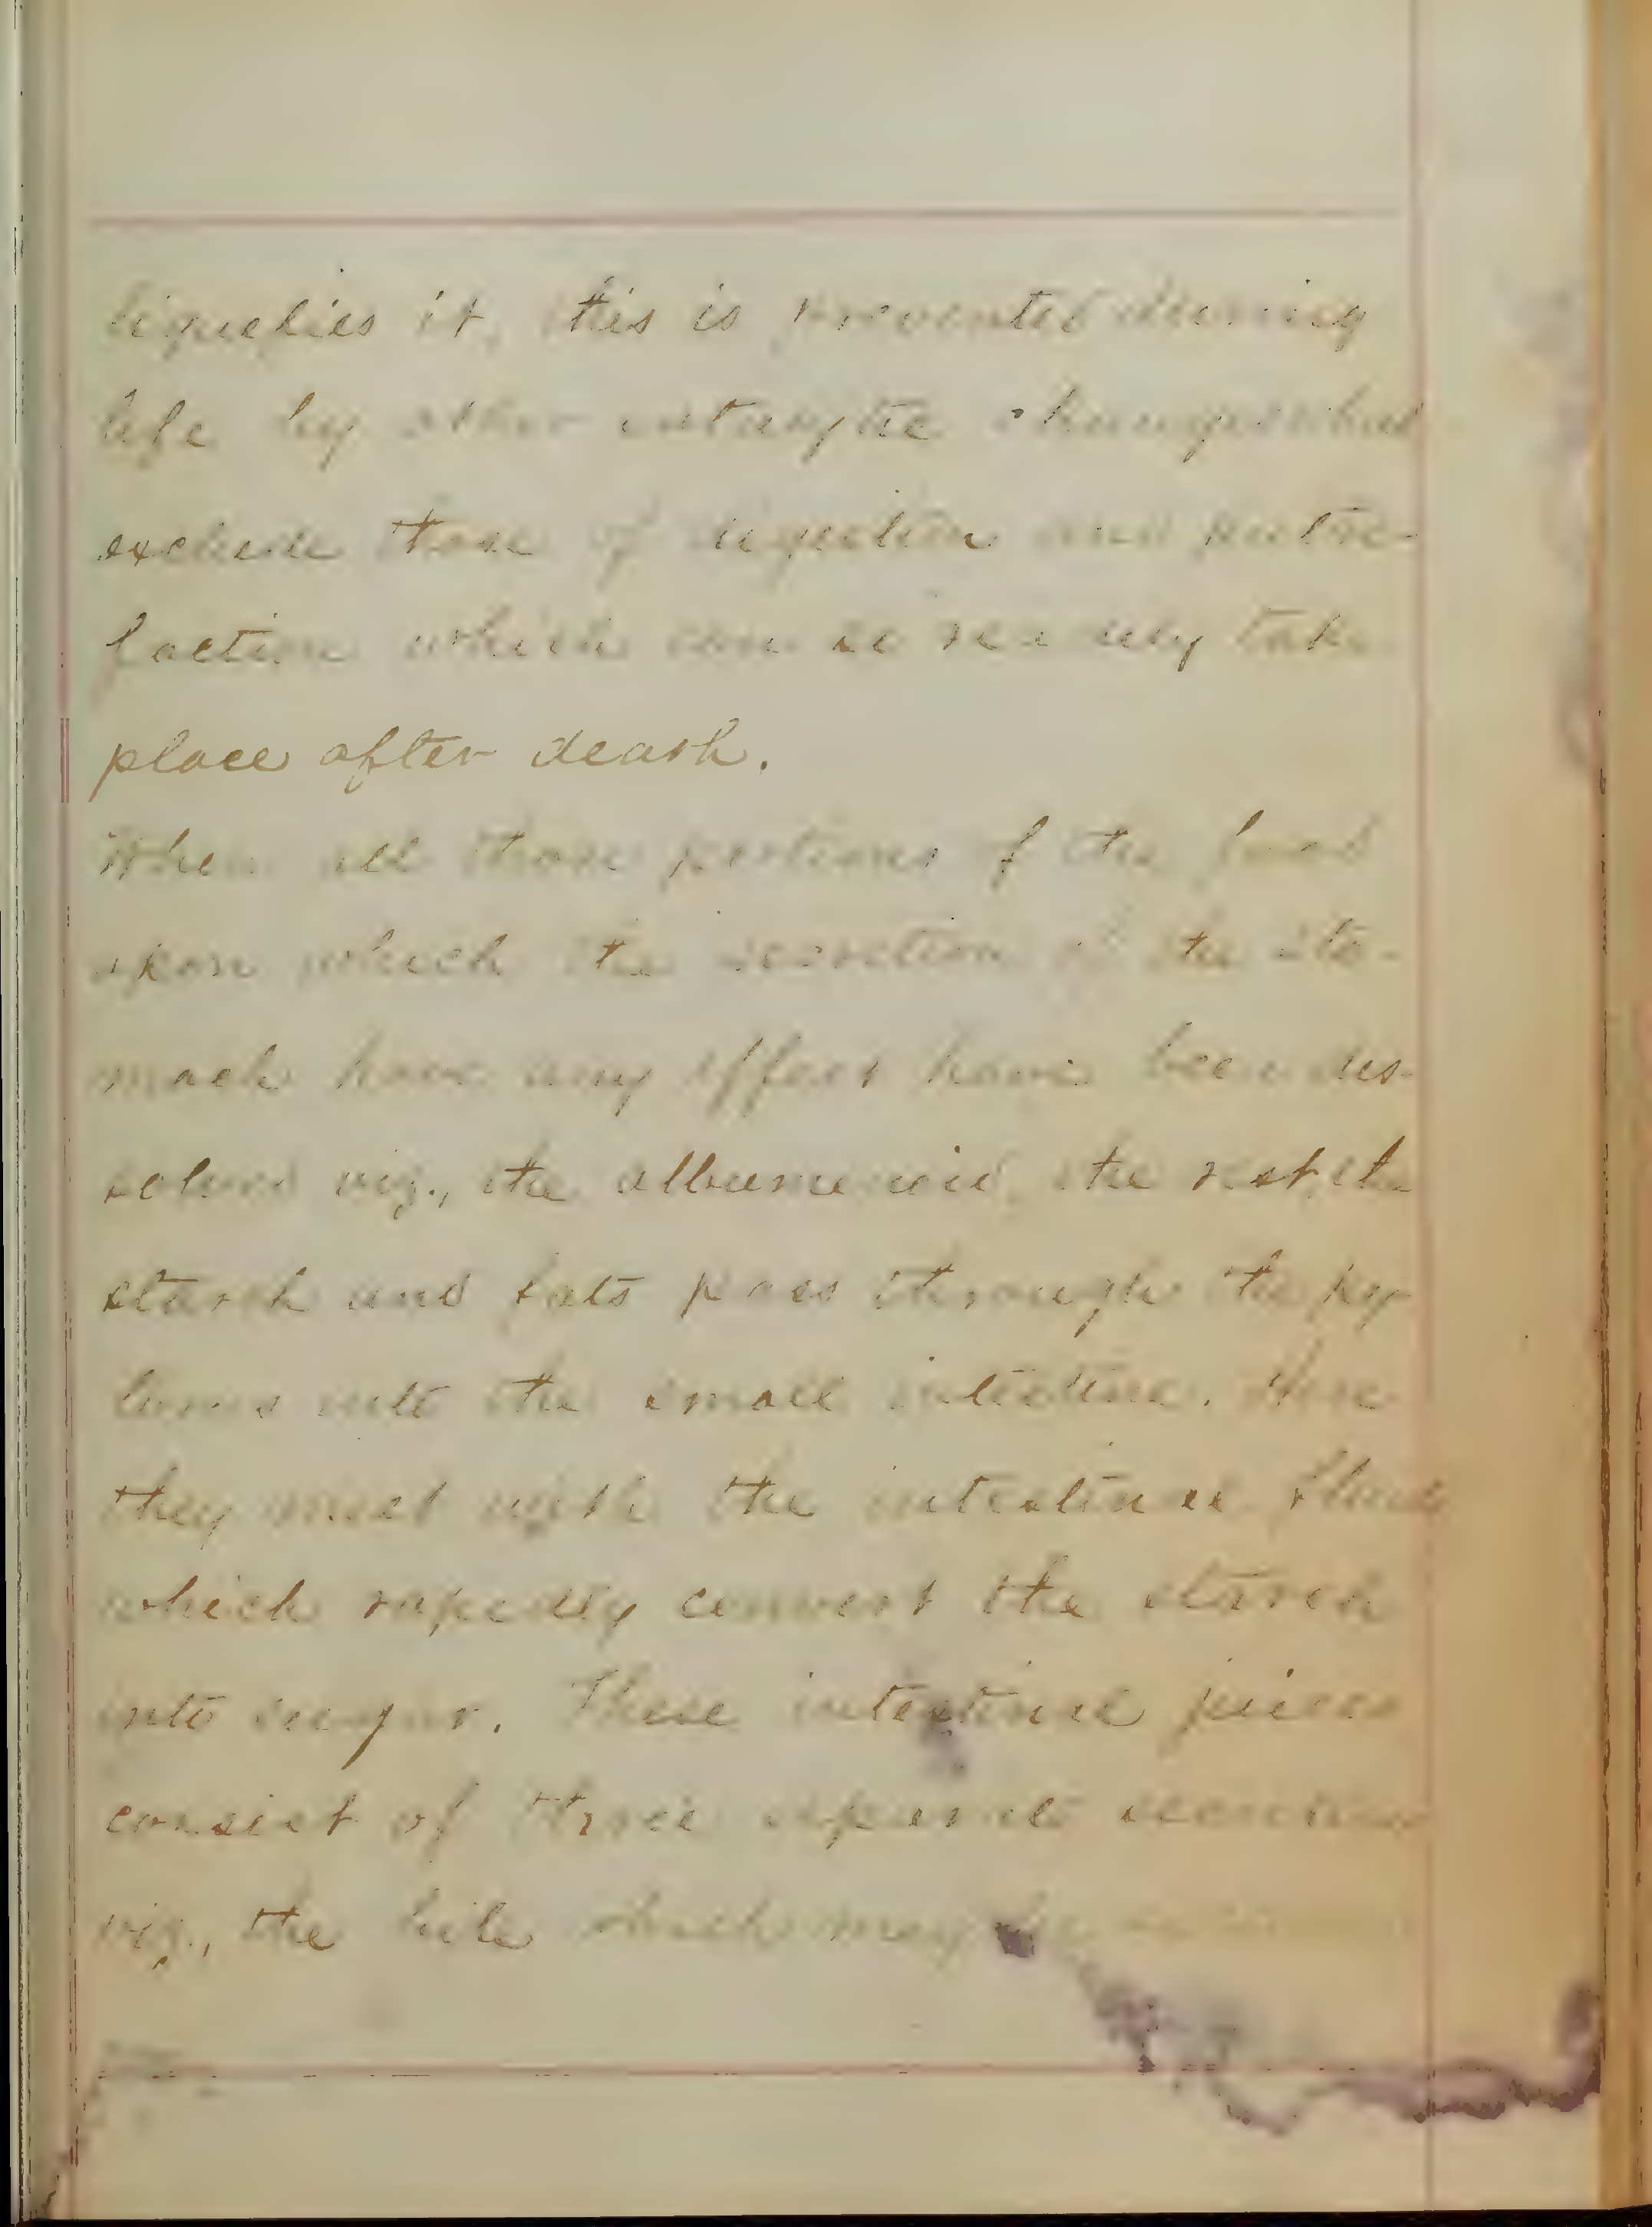 liquefies it, this is prevented during
life by other catalytic changes that
exclude those of digestion and putre-
faction which can so readily take
place after death.
When all those portions of the food
upon which the secretion of the sto-
mach have any effect have been dis-
solved viz., the albumenoid, the rest, the
starch and fats pass through the py
lorus into the small intestine. Here
they meet with the intestinal fluids
which rapidly convert the starch
into sugar. These intestinal juices
consist of three separate secretions
viz., the bile which may be